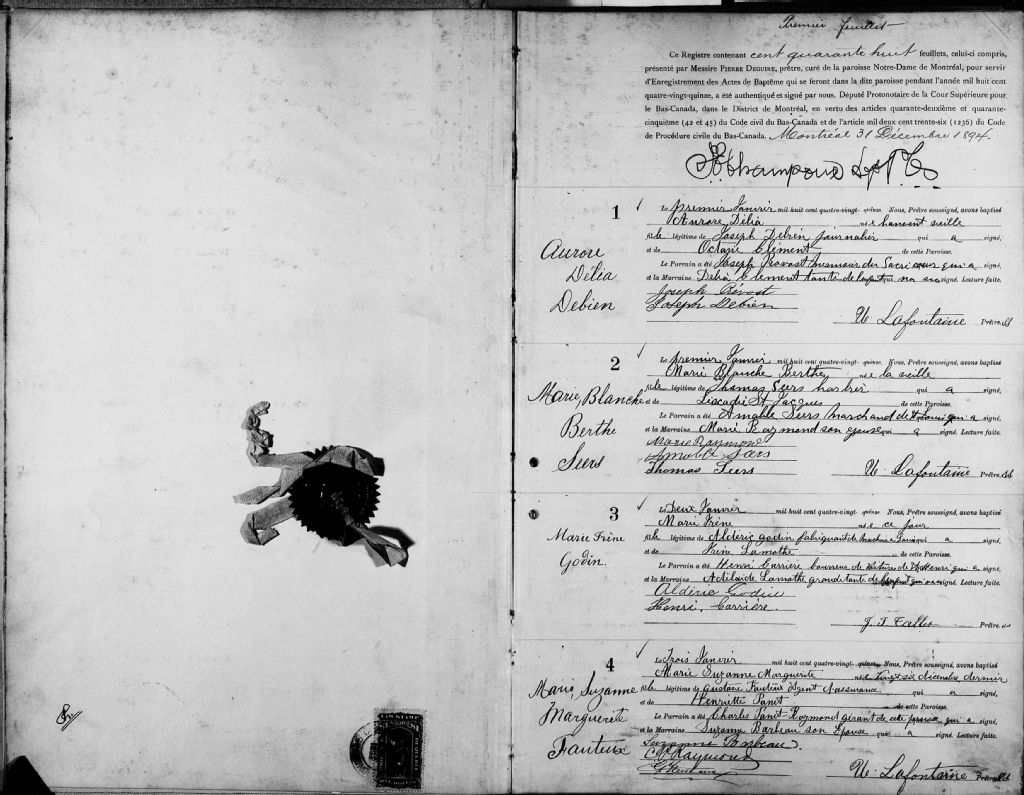 Premier feuillet
Ce Registre contenant cent quarante huit feuillets, celui-ci compris,
présenté par Messire PIERRE DEGUIRE, prêtre, curé de la paroisse Notre-Dame de Montréal, pour servir
d'Enregistrement des Actes de Baptême qui se feront dans la dite paroisse pendant l'année mil huit cent
quatre-vingt-quinze, a été authentiqué et signé par nous, Député Protonotaire de la Cour Supérieure pour
le Bas-Canada, dans le District de Montréal, en vertu des articles quarante-deuxième et quarante-
cinquième (42 et 45) du Code civil du Bas-Canada et de l'article mil deux cent trente-six (1236) du Code
de Procédure civile du Bas-Canada. Montréal 31 Décembre 1894
1
Aurore
Délia
Debien
Le premier Janvier mil huit cent quatre-vingt-quinze. Nous, Prêtre soussigné, avons baptisé
Aurore Délia née
fille légitime de Joseph Debien journalier qui a signé,
et de Octavie Clément de cette Paroisse.
Le Parrain a été Joseph qui a signé,
et la Marraine Délia Clément tante de qui na su signé. Lecture faite.
Joseph Prévost
Joseph Debien
U. Lafontaine Prêtre
2
Marie Blanche
Berthe
Seers
Le premier Janvier mil huit cent quatre-vingt-quinze. Nous, Prêtre soussigné, avons baptisé
Marie Blanche Berthe née la veille
fille légitime de Thomas Seers qui a signé,
et de St Jacques de cette Paroisse.
Le Parrain a été Amable Seers marchand de qui a signé,
et la Marraine Marie Raymond son épouse qui a signé. Lecture faite.
Marie Raymond
Amable Seers
Thomas Seers
U. Lafontaine Prêtre
3
Marie Irène
Godin.
Le Deux Janvier mil huit cent quatre-vingt-quinze. Nous, Prêtre soussigné, avons baptisé
Marie Irène née ce jour
fille légitime de Aldéric Godin fabriquant de qui a signé,
et de Irène Lamothe de cette Paroisse.
Le Parrain a été Henri Carrière de voitures de St Henri qui a signé,
et la Marraine Adélaïde Lamothe grande tante de l'enfant qui signé. Lecture faite.
Aldéric Godin
Henri Carrière.
J. T. Prêtre
4
Marie, Suzanne
Marguerite
Fauteux
Le Trois Janvier mil huit cent quatre-vingt-quinze. Nous, Prêtre soussigné, avons baptisé
Marie Suzanne Marguerite née vingt six décembre dernier
fille légitime de Gustave Fauteux Agent d'assurance qui a signé,
et de Henriette Panet de cette Paroisse.
Le Parrain a été Charles Panet-Raymond gérant de cette paroisse qui a signé,
et la Marraine Suzanne Barbeau son épouse qui a signé. Lecture faite.
Suzanne Barbeau.
Raymond
U. Lafontaine Prêtre
LAW STAMP